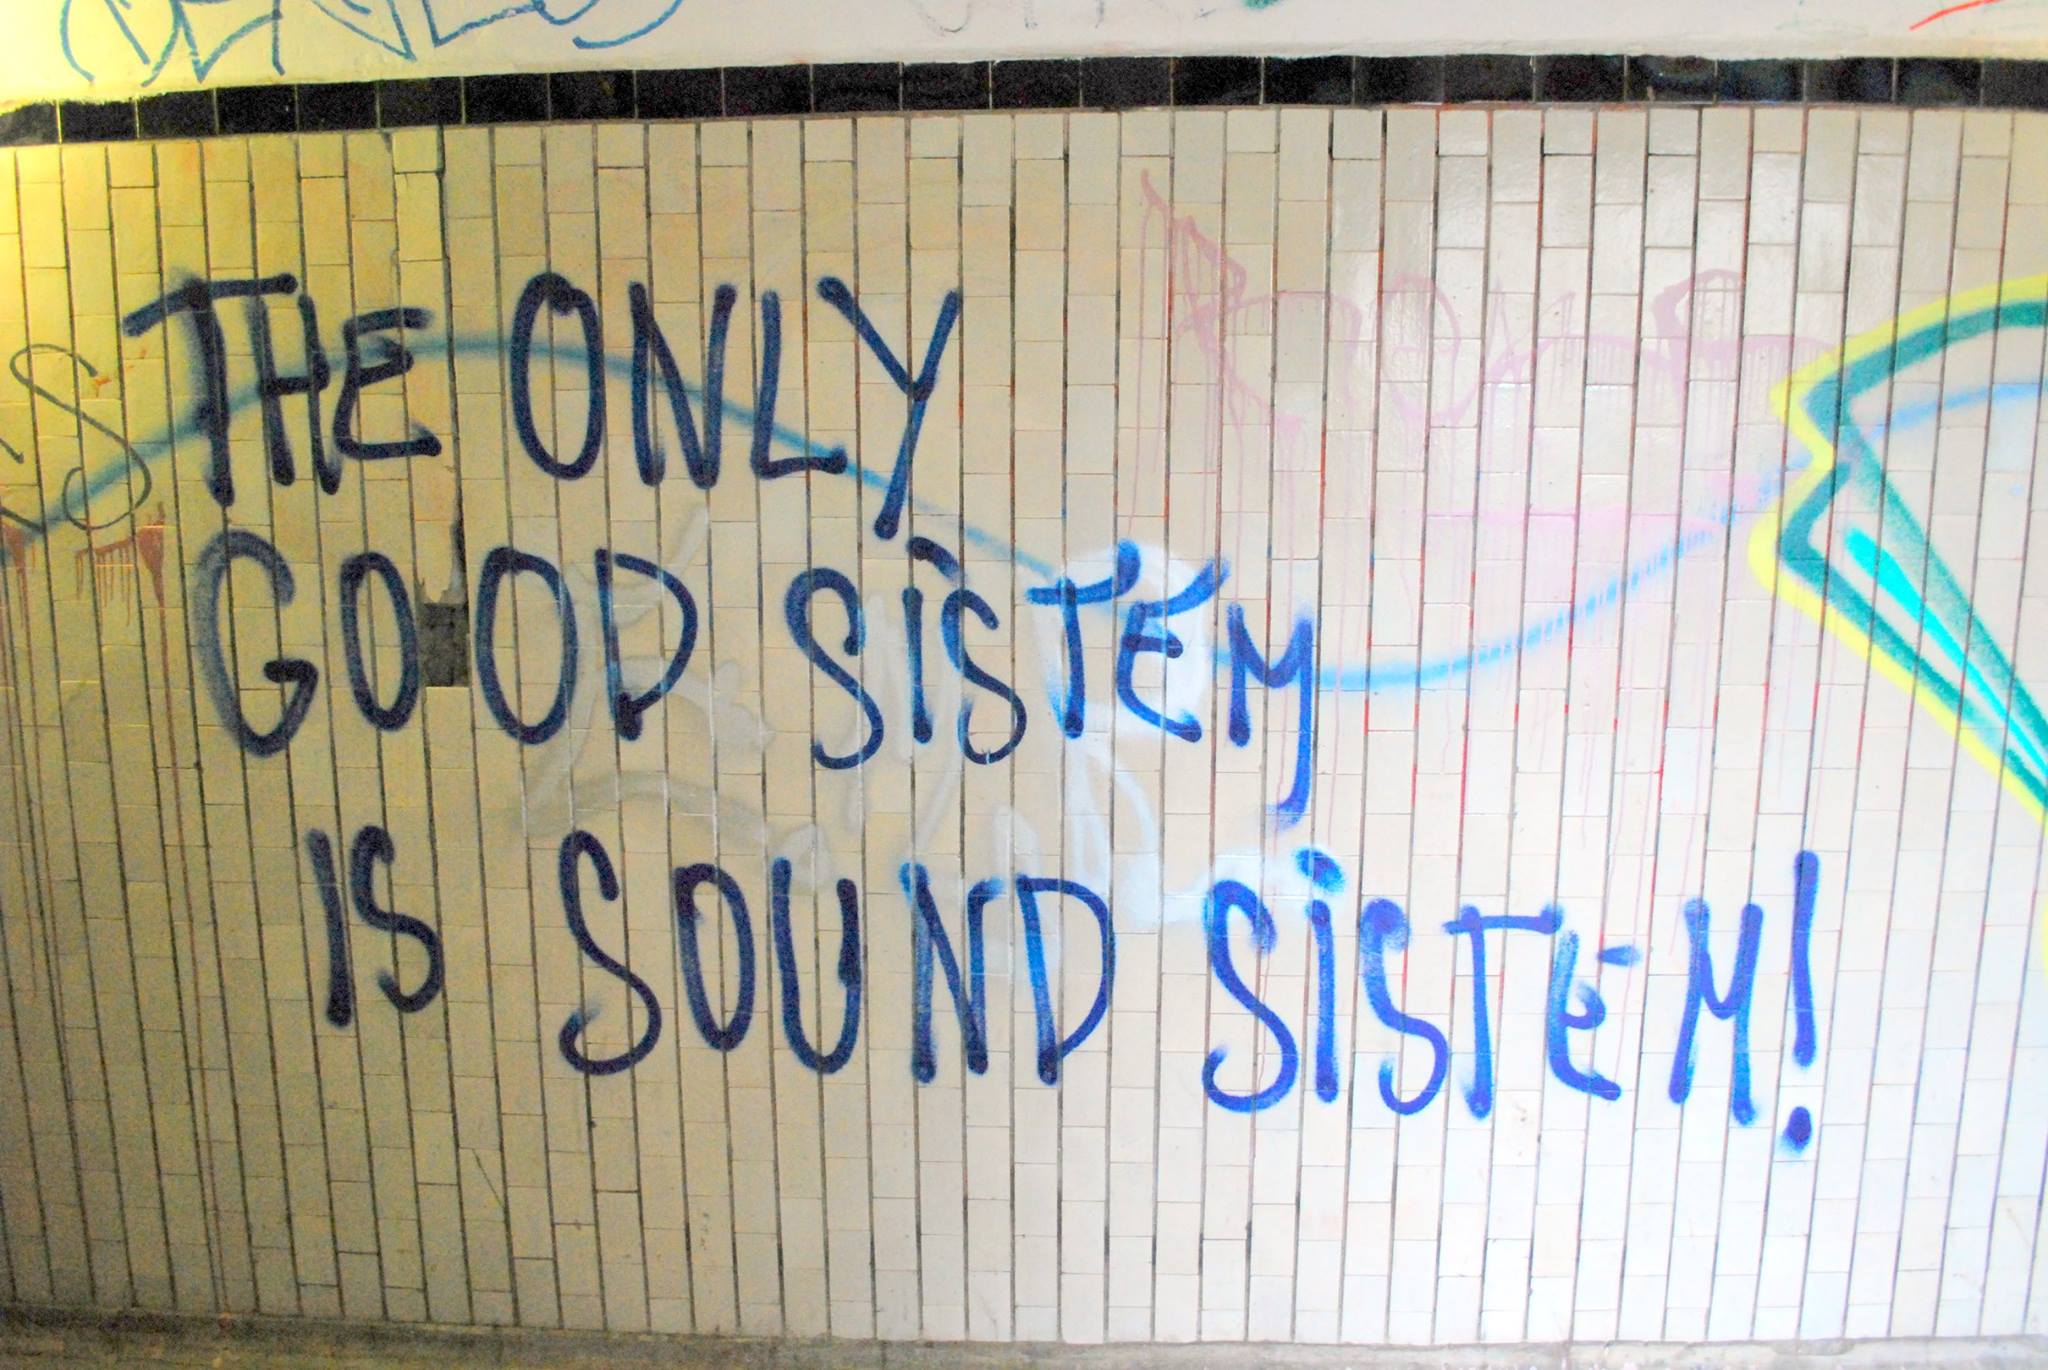 THE ONLY
GOOD SiSTEM
IS SOUND SiSTEM!